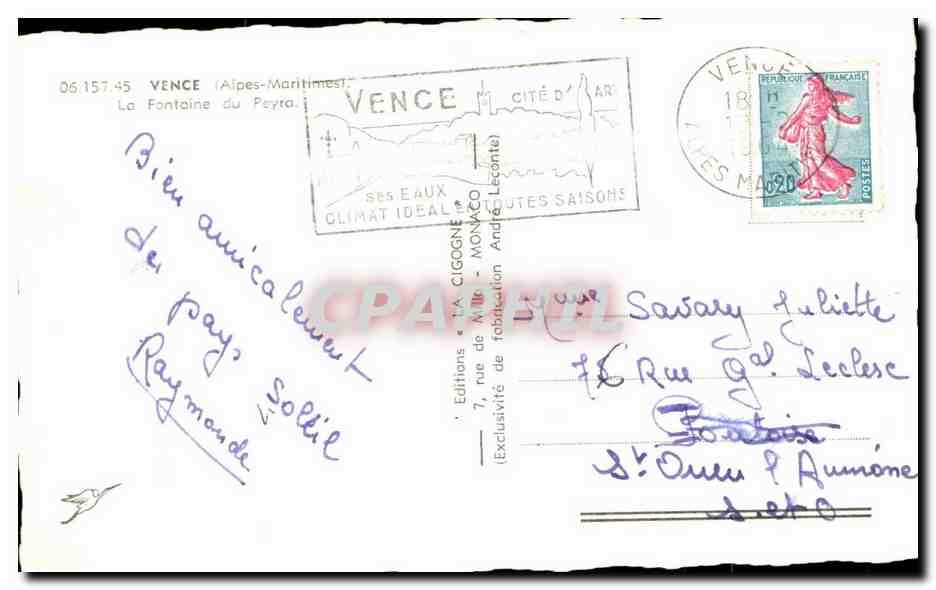 06.157.45 VENCE (Alpes-Maritimes).
La Fontaine du Peyra.
VENCE
CITÉ D'ART
SES EAUX
CLIMAT IDEAL EN TOUTES SAISONS
VENCE
18 H
ALPES MARIT
REPUBLIQUE FRANÇAISE
0,20
POSTES
Bien amicalement
du pays Soleil
Raymonde
Editions « LA CIGOGNE »
7, rue de Millo - MONACO
(Exclusivité de fabrication André Leconte)
CPAPHIL
Savary Juliette
76 Rue Gal Leclerc
Pontoise
St Ouen l'Aumône
S. et O